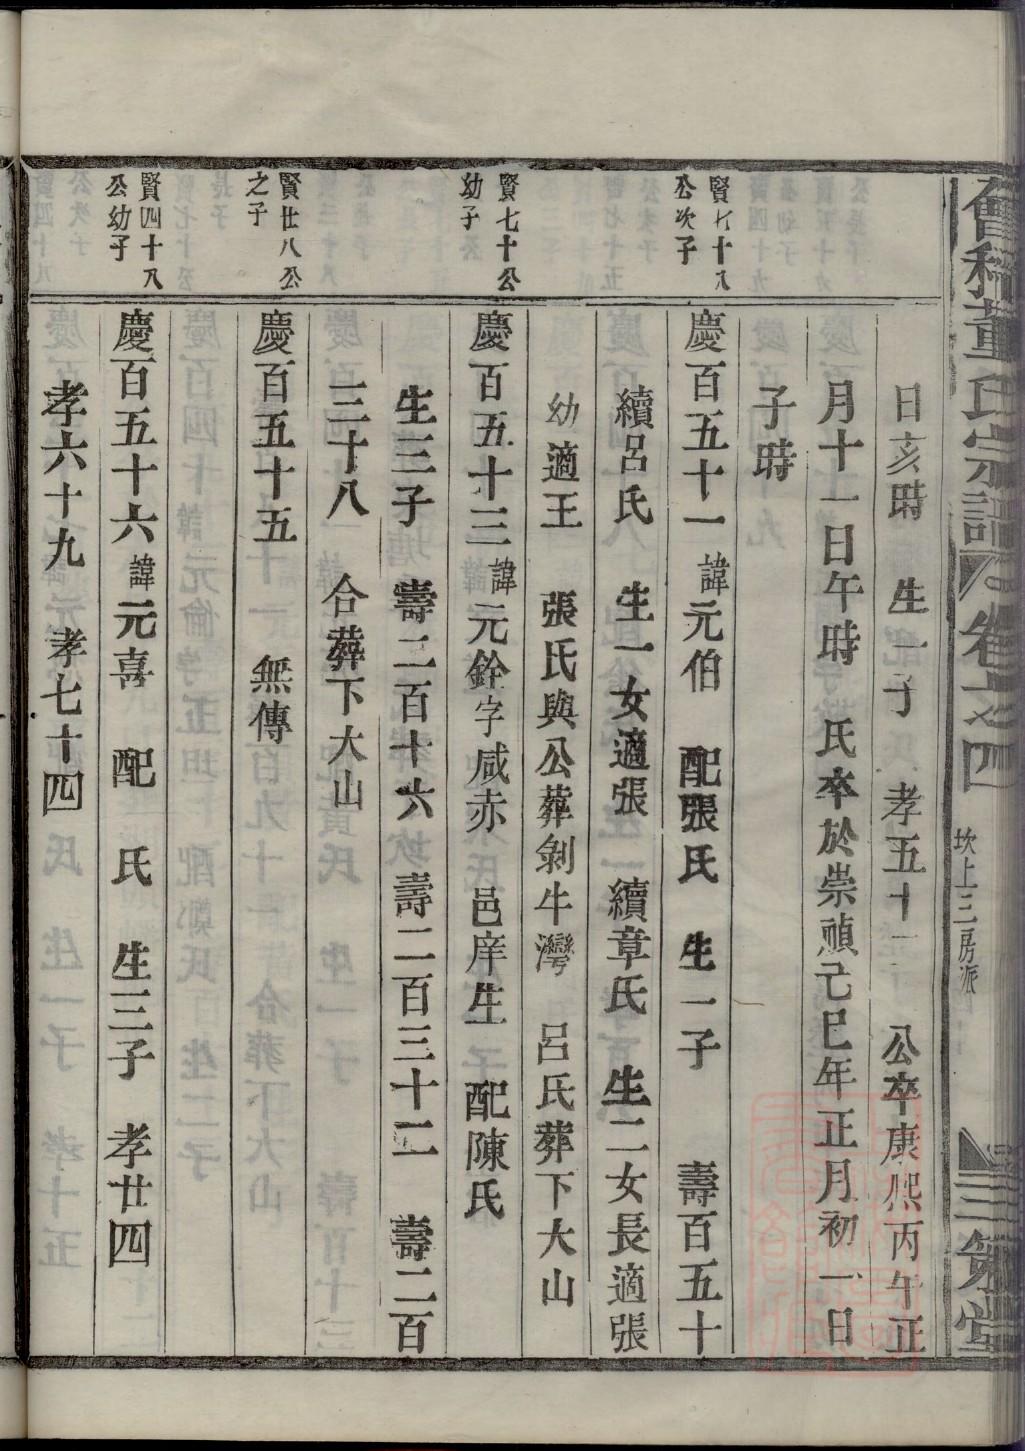 會稽董氏宗譜 卷之四 坎上三房派 三策堂
日亥時 生一子 孝五十一 公卒康熙丙午正
月十一日午時 氏卒於崇禎己巳年正月初一日
子時
公次子
慶百五十一諱元伯 配張氏 生一子 壽百五十
續呂氏 生一女適張 續章氏 生二女長適張
幼適王 張氏與公葬剝牛灣 呂氏葬下大山
賢七十公
幼子
慶百五十三諱元銓字咸赤 邑庠生 配陳氏
生三子 壽二百十六 壽二百三十二 壽二百
三十八 合葬下大山
賢廿八公
之子
慶百五十五 無傳
賢四十八
公幼子
慶百五十六諱元喜 配 氏 生三子 孝廿四
孝六十九 孝七十四